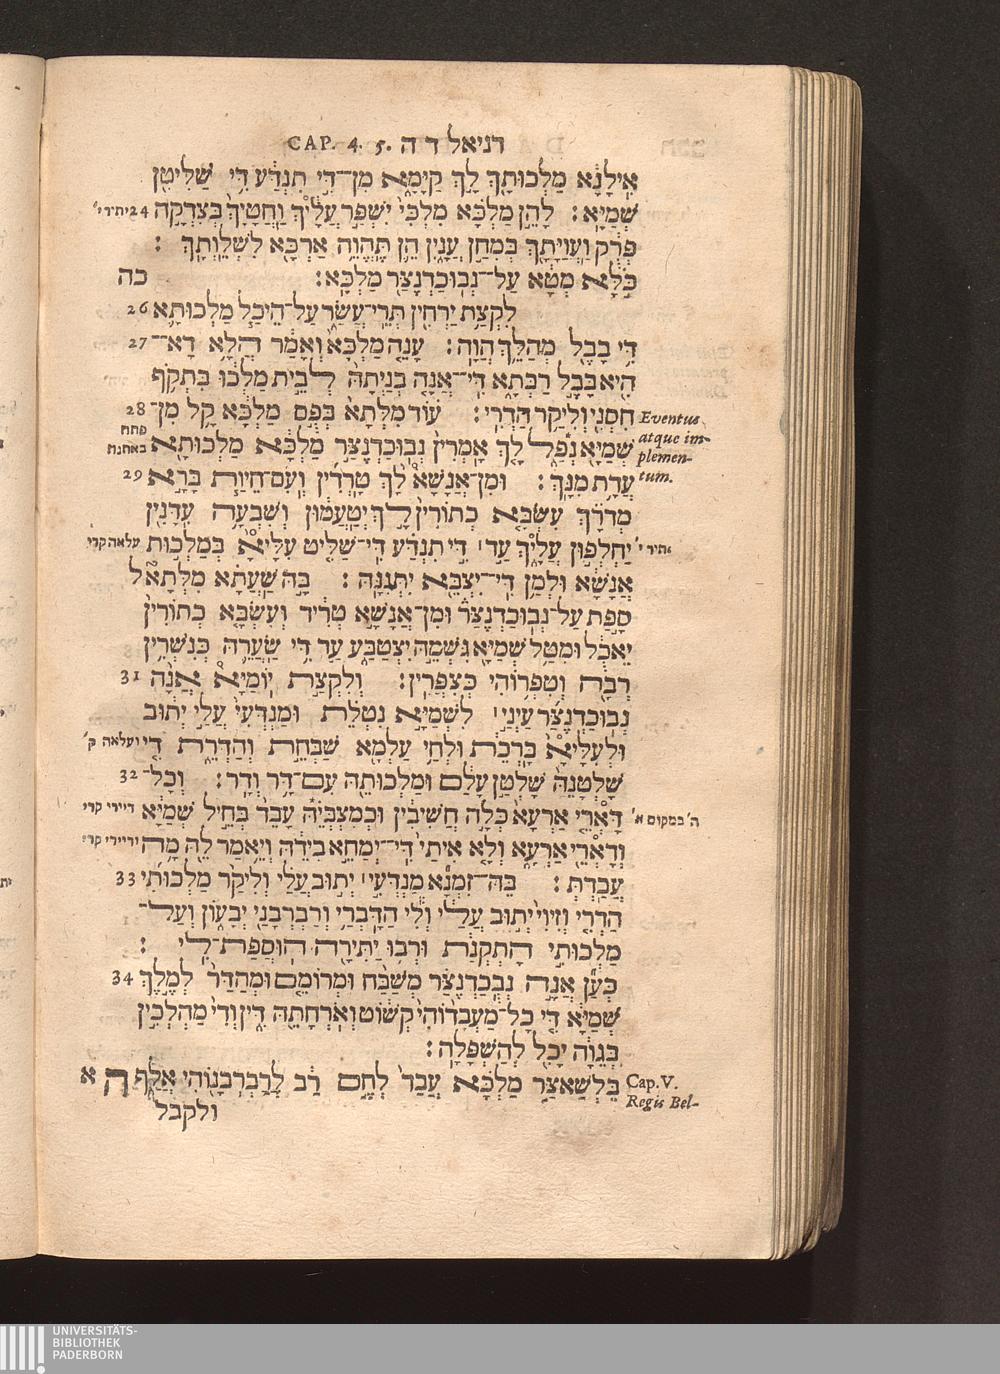 CAP. 4. 5. דניאל ד ה
אִילָנָא מַלְכוּתָךְ לָךְ קַיָּמָא מִן־דִּי תִנְדַּע דִּי שַׁלִּיטִן
שְׁמַיָּא׃ לָהֵן מַלְכָּא מִלְכִּי יִשְׁפַּר עֲלָיִךְ וַחֲטָיָךְ בְּצִדְקָה 24 יתיר י׳
פְרֻק וַעֲוָיָתָךְ בְּמִחַן עֲנָיִן הֵן תֶּהֱוֵה אַרְכָא לִשְׁלֵוְתָךְ׃
כֹּלָּא מְּטָא עַל־נְבוּכַדְנֶצַּר מַלְכָּא׃ כה
לִקְצָת יַרְחִין תְּרֵי־עֲשַׂר עַל־הֵיכַל מַלְכוּתָא 26
דִּי בָבֶל מְהַלֵּךְ הֲוָה׃ עָנֵה מַלְכָּא וְאָמַר הֲלָא דָא־ 27
הִיא בָּבֶל רַבְּתָא דִּי־אֲנָה בְנַיְתַהּ לְבֵית מַלְכוּ בִּתְקָף
חִסְנִי וְלִיקָר הַדְרִי׃ עוֹד מִלְּתָא בְּפֻם מַלְכָּא קָל מִן־ 28
Eventus
atque im-
plemen-
tum.
שְׁמַיָּא נְפַל לָךְ אָמְרִין נְבוּכַדְנֶצַּר מַלְכָּא מַלְכוּתָא פתח באתנח
עֲדָת מִנָּךְ׃ וּמִן־אֲנָשָׁא לָךְ טָרְדִין וְעִם־חֵיוַת בָּרָא 29
מְדֹרָךְ עִשְׂבָּא כְתוֹרִין לָךְ יְטַעֲמוּן וְשִׁבְעָה עִדָּנִין
יתיר י׳ יַחְלְפוּן עֲלָיִךְ עַד דִּי תִנְדַּע דִּי־שַׁלִּיט עִלָּיָא בְּמַלְכוּת עלאה קרי
אֲנָשָׁא וּלְמַן דִּי־יִצְבֵּא יִתְּנִנַּהּ׃ בַּהּ שַׁעֲתָא מִלְּתָא ל
סָפַת עַל־נְבוּכַדְנֶצַּר וּמִן־אֲנָשָׁא טְרִיד וְעִשְׂבָּא כְתוֹרִין
יֵאכֻל וּמִטַּל שְׁמַיָּא גִּשְׁמֵהּ יִצְטַבַּע עַד דִּי שַׂעְרֵהּ כְּנִשְׁרִין
רְבָה וְטִפְרוֹהִי כְצִפְּרִין׃ וְלִקְצָת יוֹמַיָּא אֲנָה 31
נְבוּכַדְנֶצַּר עַיְנַי לִשְׁמַיָּא נִטְלֵת וּמַנְדְּעִי עֲלַי יְתוּב
וּלְעִלָּיָא בָּרְכֵת וּלְחַי עָלְמָא שַׁבְּחֵת וְהַדְּרֵת דִּי ועלאה ק׳
שָׁלְטָנֵהּ שָׁלְטָן עָלַם וּמַלְכוּתֵהּ עִם־דָּר וְדָר׃ וְכָל־ 32
ה׳ במקום א׳ דָּאֲרֵי אַרְעָא כְּלָה חֲשִׁיבִין וּכְמִצְבְּיֵהּ עָבֵד בְּחֵיל שְׁמַיָּא דיירי קרי
וְדָאֲרֵי אַרְעָא וְלָא אִיתַי דִּי־יְמַחֵא בִידֵהּ וְיֵאמַר לֵהּ מָה ודיירי קרי
עֲבַדְתְּ׃ בֵּהּ־זִמְנָא מַנְדְּעִי יְתוּב עֲלַי וְלִיקַר מַלְכוּתִי 33
הַדְרִי וְזִיוִי יְתוּב עֲלַי וְלִי הַדָּבְרַי וְרַבְרְבָנַי יְבַעוֹן וְעַל־
מַלְכוּתִי הָתְקְנַת וּרְבוּ יַתִּירָה הוּסְפַת־לִי׃
כְּעַן אֲנָה נְבֻכַדְנֶצַּר מְשַׁבַּח וּמְרוֹמֵם וּמְהַדַּר לְמֶלֶךְ 34
שְׁמַיָּא דִּי כָל־מַעֲבָדוֹהִי קְשׁוֹט וְאֹרְחָתֵהּ דִּין וְדִי מַהְלְכִין
בְּגֵוָה יָכִל לְהַשְׁפָּלָה׃
Cap. V.
Regis Bel-
בֵּלְשַׁאצַּר מַלְכָּא עֲבַד לְחֶם רַב לְרַבְרְבָנוֹהִי אֲלַף ה א
ולקבל
UNIVERSITÄTS-
BIBLIOTHEK
PADERBORN